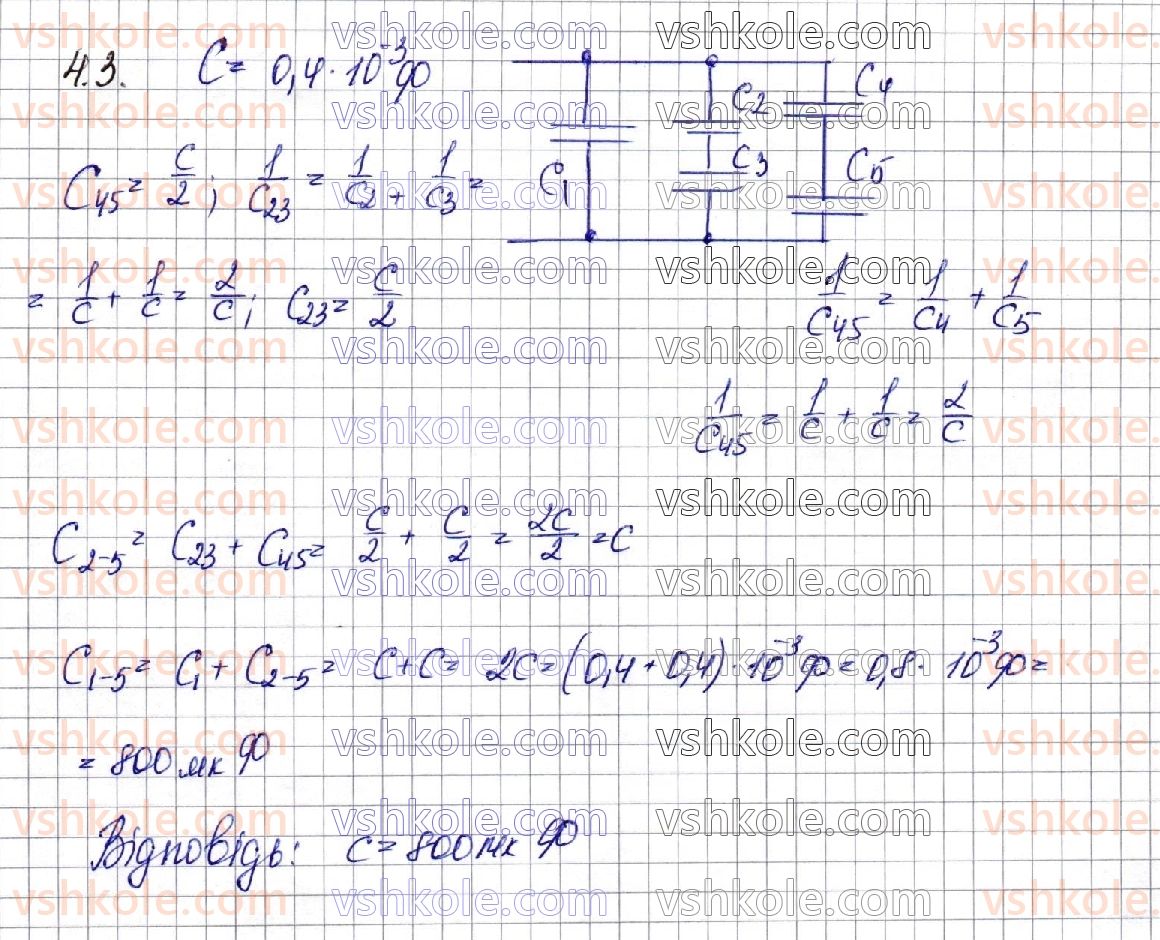 4.3. C = 0,4 · 10⁻³ Ф
C₁
C2
C3
C4
C5
C₄₅ = C/2; 1/C₂₃ = 1/C₂ + 1/C₃ =
= 1/C + 1/C = 2/C; C₂₃ = C/2
1/C₄₅ = 1/C₄ + 1/C₅
1/C₄₅ = 1/C + 1/C = 2/C
C₂₋₅ = C₂₃ + C₄₅ = C/2 + C/2 = 2C/2 = C
C₁₋₅ = C₁ + C₂₋₅ = C + C = 2C = (0,4 + 0,4) · 10⁻³ Ф = 0,8 · 10⁻³ Ф =
= 800 мк Ф
Відповідь: C = 800 мк Ф
vshkole.com